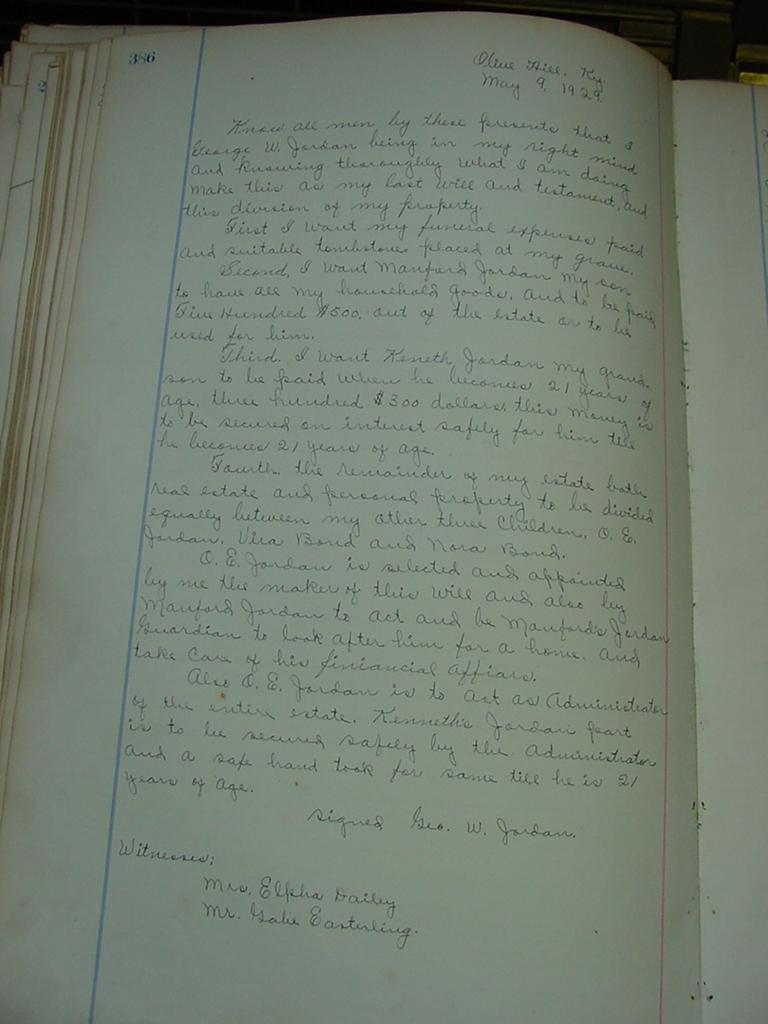 386
Olive Hill, Ky.
May 9, 1929.
Know all men by these presents that I
George W. Jordan being in my right mind
and knowing thoroughly what I am doing
make this as my last will and testament, and
this division of my property.
First I want my funeral expenses paid
and suitable tombstones placed at my grave.
Second, I want Manford Jordan my son
to have all my household goods, and to be paid
Five Hundred $500, out of the estate or to be
used for him.
Third. I want Keneth Jordan my grand-
son to be paid when he becomes 21 years of
age, three hundred $300 dollars, this money is
to be secured on interest safely for him till
he becomes 21 years of age.
Fourth. the remainder of my estate both
real estate and personal property to be divided
equally between my other three children, O. E.
Jordan, Vira Bond and Nora Bond.
O. E. Jordan is selected and appointed
by me the maker of this will and also by
Manford Jordan to act and be Manford's Jordan
Guardian to look after him for a home, and
take care of his finiancial affiars.
Also O. E. Jordan is to act as Administrator
of the entire estate. Kenneth's Jordan part
is to be secured safely by the Administrator
and a safe hand took for same till he is 21
years of age.
signed Geo. W. Jordan.
Witnesses:
Mrs. Elpha Dailey
Mr. Gabe Easterling.